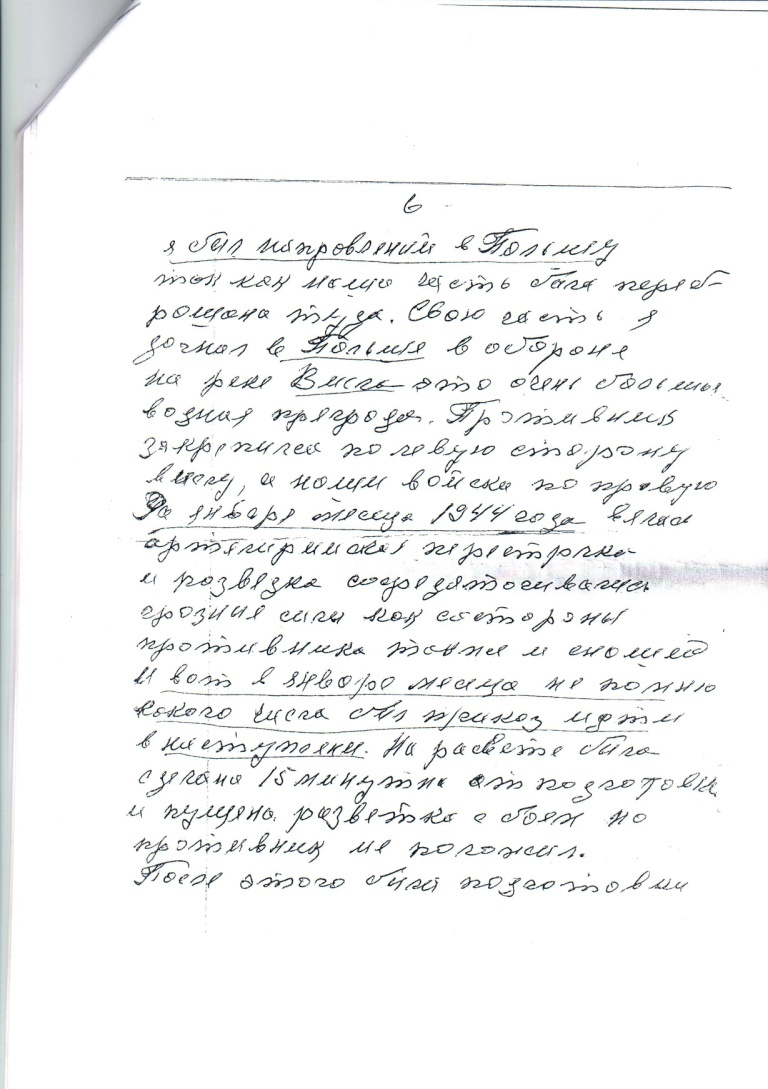 6
я был направлений в Польшу
так как наша часть была переб-
рошана туда. Свою часть я
дочнал в Польше в обороне
на реке Висла это очень больша
водная преграда. Противник
закрепился по левую сторону
вислу, а наши войска по правую
До января месяца 1944 года вялас
артилиринская перестрлка
и разведка сосредотосивались
грозные силы как состороны
противника также и снашей
И вот в январе месяца не помню
какого числа был приказ идти
в наступлени. На расвете была
сделана 15 минутна арт подготовка
и пущена разветка с боем но
противник не
После этого была подготовки